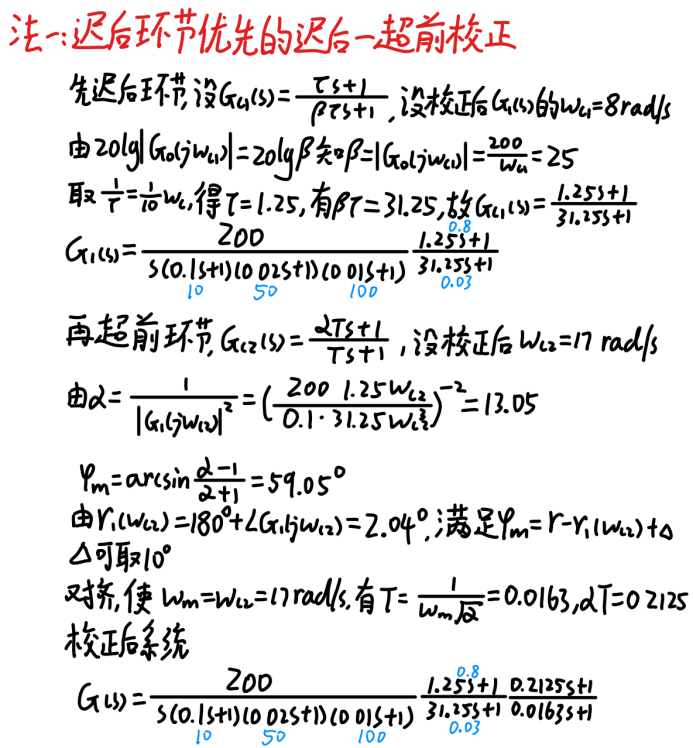 法一:迟后环节优先的迟后—超前校正
先迟后环节,设Gc1(s)=(τs+1)/(βτs+1),设校正后G1(s)的wc1=8rad/s
由20lg|G0(jwc1)|=20lgβ知β=|G0(jwc1)|=200/wc1=25
取1/τ=1/10 wc,得τ=1.25,有βτ=31.25,故Gc1(s)=(1.25s+1)/(31.25s+1)
G1(s)=200/(s(0.1s+1)(0.02s+1)(0.01s+1)) (1.25s+1)/(31.25s+1)
0.8
10 50 100 0.03
再超前环节,Gc2(s)=(αTs+1)/(Ts+1),设校正后wc2=17 rad/s
由α=1/|G1(jwc2)|²=(200·1.25wc2/(0.1·31.25wc2³))⁻²=13.05
φm=arcsin (α-1)/(α+1)=59.05°
由r1(wc2)=180°+∠G1(jwc2)=2.04°,满足φm=r-r1(wc2)+Δ
Δ可取10°
对齐,使wm=wc2=17rad/s,有T=1/(wm√α)=0.0163,αT=0.2125
校正后系统
G(s)=200/(s(0.1s+1)(0.02s+1)(0.01s+1)) (1.25s+1)/(31.25s+1) (0.2125s+1)/(0.0163s+1)
0.8
10 50 100 0.03